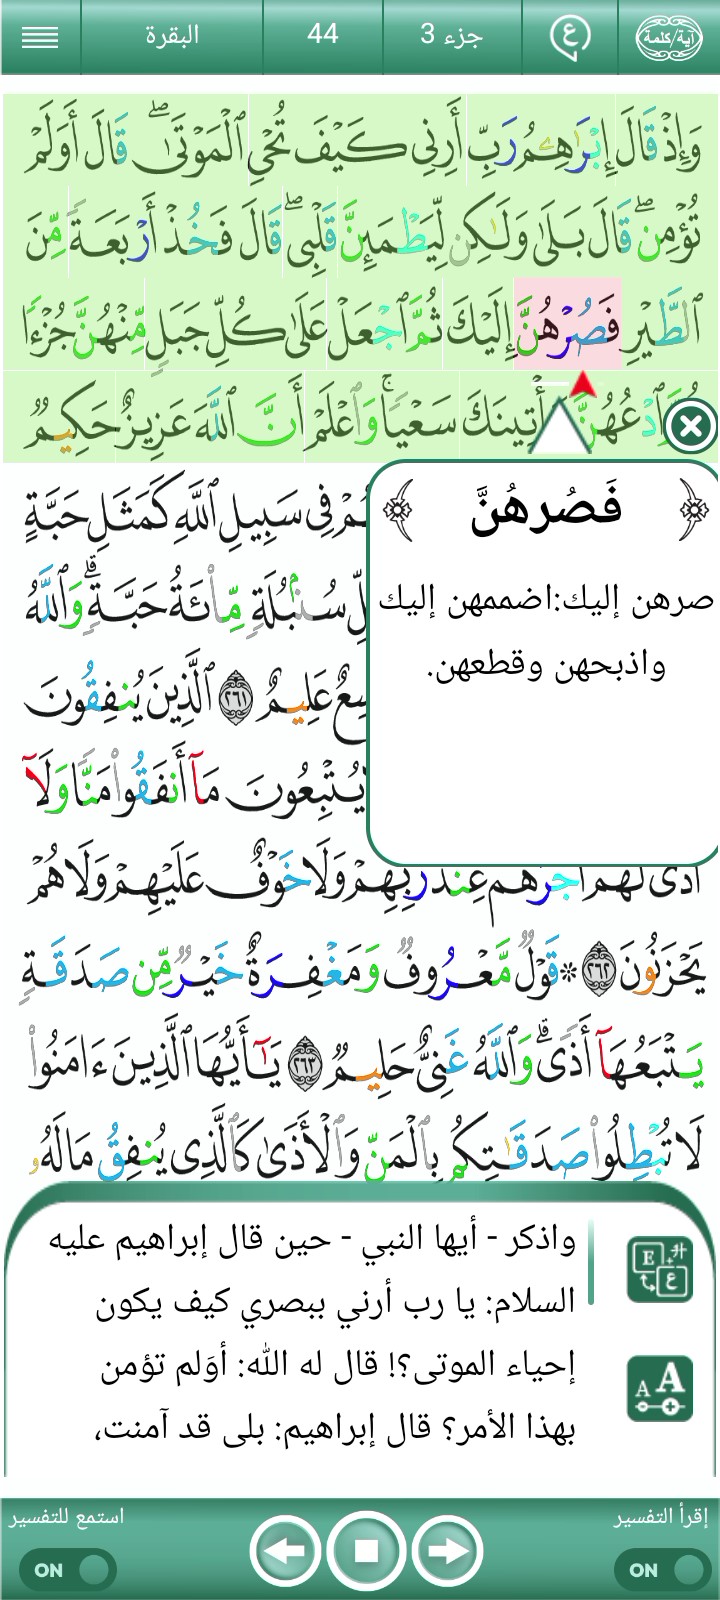 آية/كلمة
ع
جزء 3
44
البقرة
وَإِذْ قَالَ إِبْرَٰهِـۧمُ رَبِّ أَرِنِي كَيْفَ تُحْيِ الْمَوْتَىٰ ۖ قَالَ أَوَلَمْ
تُؤْمِن ۖ قَالَ بَلَىٰ وَلَٰكِن لِّيَطْمَئِنَّ قَلْبِي ۖ قَالَ فَخُذْ أَرْبَعَةً مِّنَ
الطَّيْرِ فَصُرْهُنَّ إِلَيْكَ ثُمَّ اجْعَلْ عَلَىٰ كُلِّ جَبَلٍ مِّنْهُنَّ جُزْءًا
ثُمَّ ادْعُهُنَّ يَأْتِينَكَ سَعْيًا ۚ وَاعْلَمْ أَنَّ اللَّهَ عَزِيزٌ حَكِيمٌ
فَصُرهُنَّ
صرهن إليك:اضممهن إليك
واذبحهن وقطعهن.
فِي سَبِيلِ اللَّهِ كَمَثَلِ حَبَّةٍ
سُنۢبُلَةٍ مِّائَةُ حَبَّةٍ ۗ وَاللَّهُ
عَلِيمٌ ٢٦١ الَّذِينَ يُنفِقُونَ
يُتْبِعُونَ مَآ أَنفَقُوا مَنًّا وَلَآ
أَذًى لَّهُمْ أَجْرُهُمْ عِندَ رَبِّهِمْ وَلَا خَوْفٌ عَلَيْهِمْ وَلَا هُمْ
يَحْزَنُونَ ٢٦٢ ۞ قَوْلٌ مَّعْرُوفٌ وَمَغْفِرَةٌ خَيْرٌ مِّن صَدَقَةٍ
يَتْبَعُهَآ أَذًى ۗ وَاللَّهُ غَنِيٌّ حَلِيمٌ ٢٦٣ يَٰٓأَيُّهَا الَّذِينَ ءَامَنُوا
لَا تُبْطِلُوا صَدَقَٰتِكُم بِالْمَنِّ وَالْأَذَىٰ كَالَّذِي يُنفِقُ مَالَهُۥ
واذكر - أيها النبي - حين قال إبراهيم عليه
السلام: يا رب أرني ببصري كيف يكون
إحياء الموتى؟! قال له الله: أوَلم تؤمن
بهذا الأمر؟ قال إبراهيم: بلى قد آمنت،
إقرأ التفسير
استمع للتفسير
ON
ON